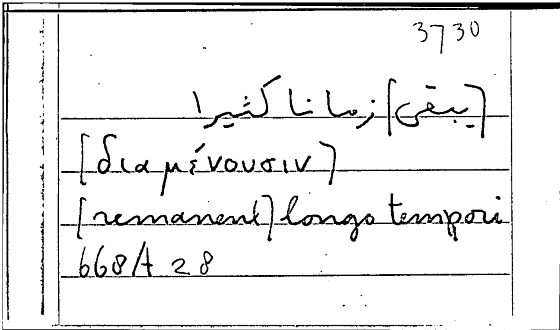 3730
[يبقى] زمانا كثيرا
[διαμένουσιν]
[remanent] longo tempori
668A 28